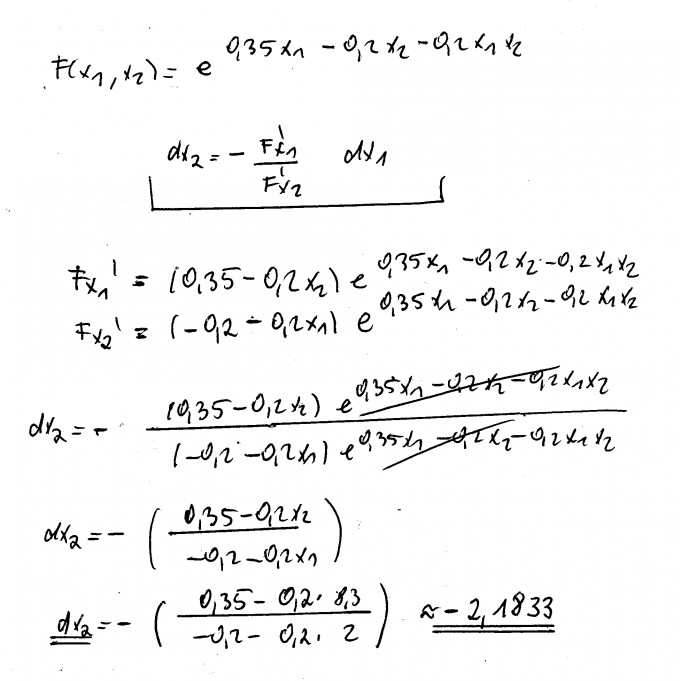 F(x₁, x₂) = e^(0,35x₁ - 0,2x₂ - 0,2x₁x₂)
dx₂ = - F'x₁ / F'x₂ dx₁
Fx₁' = (0,35 - 0,2x₂) e^(0,35x₁ - 0,2x₂ - 0,2x₁x₂)
Fx₂' = (-0,2 - 0,2x₁) e^(0,35x₁ - 0,2x₂ - 0,2x₁x₂)
dx₂ = - (0,35 - 0,2x₂) e^(0,35x₁ - 0,2x₂ - 0,2x₁x₂) / (-0,2 - 0,2x₁) e^(0,35x₁ - 0,2x₂ - 0,2x₁x₂)
dx₂ = - ( 0,35 - 0,2x₂ / -0,2 - 0,2x₁ )
dx₂ = - ( 0,35 - 0,2 · 8,3 / -0,2 - 0,2 · 2 ) ≈ - 2,1833